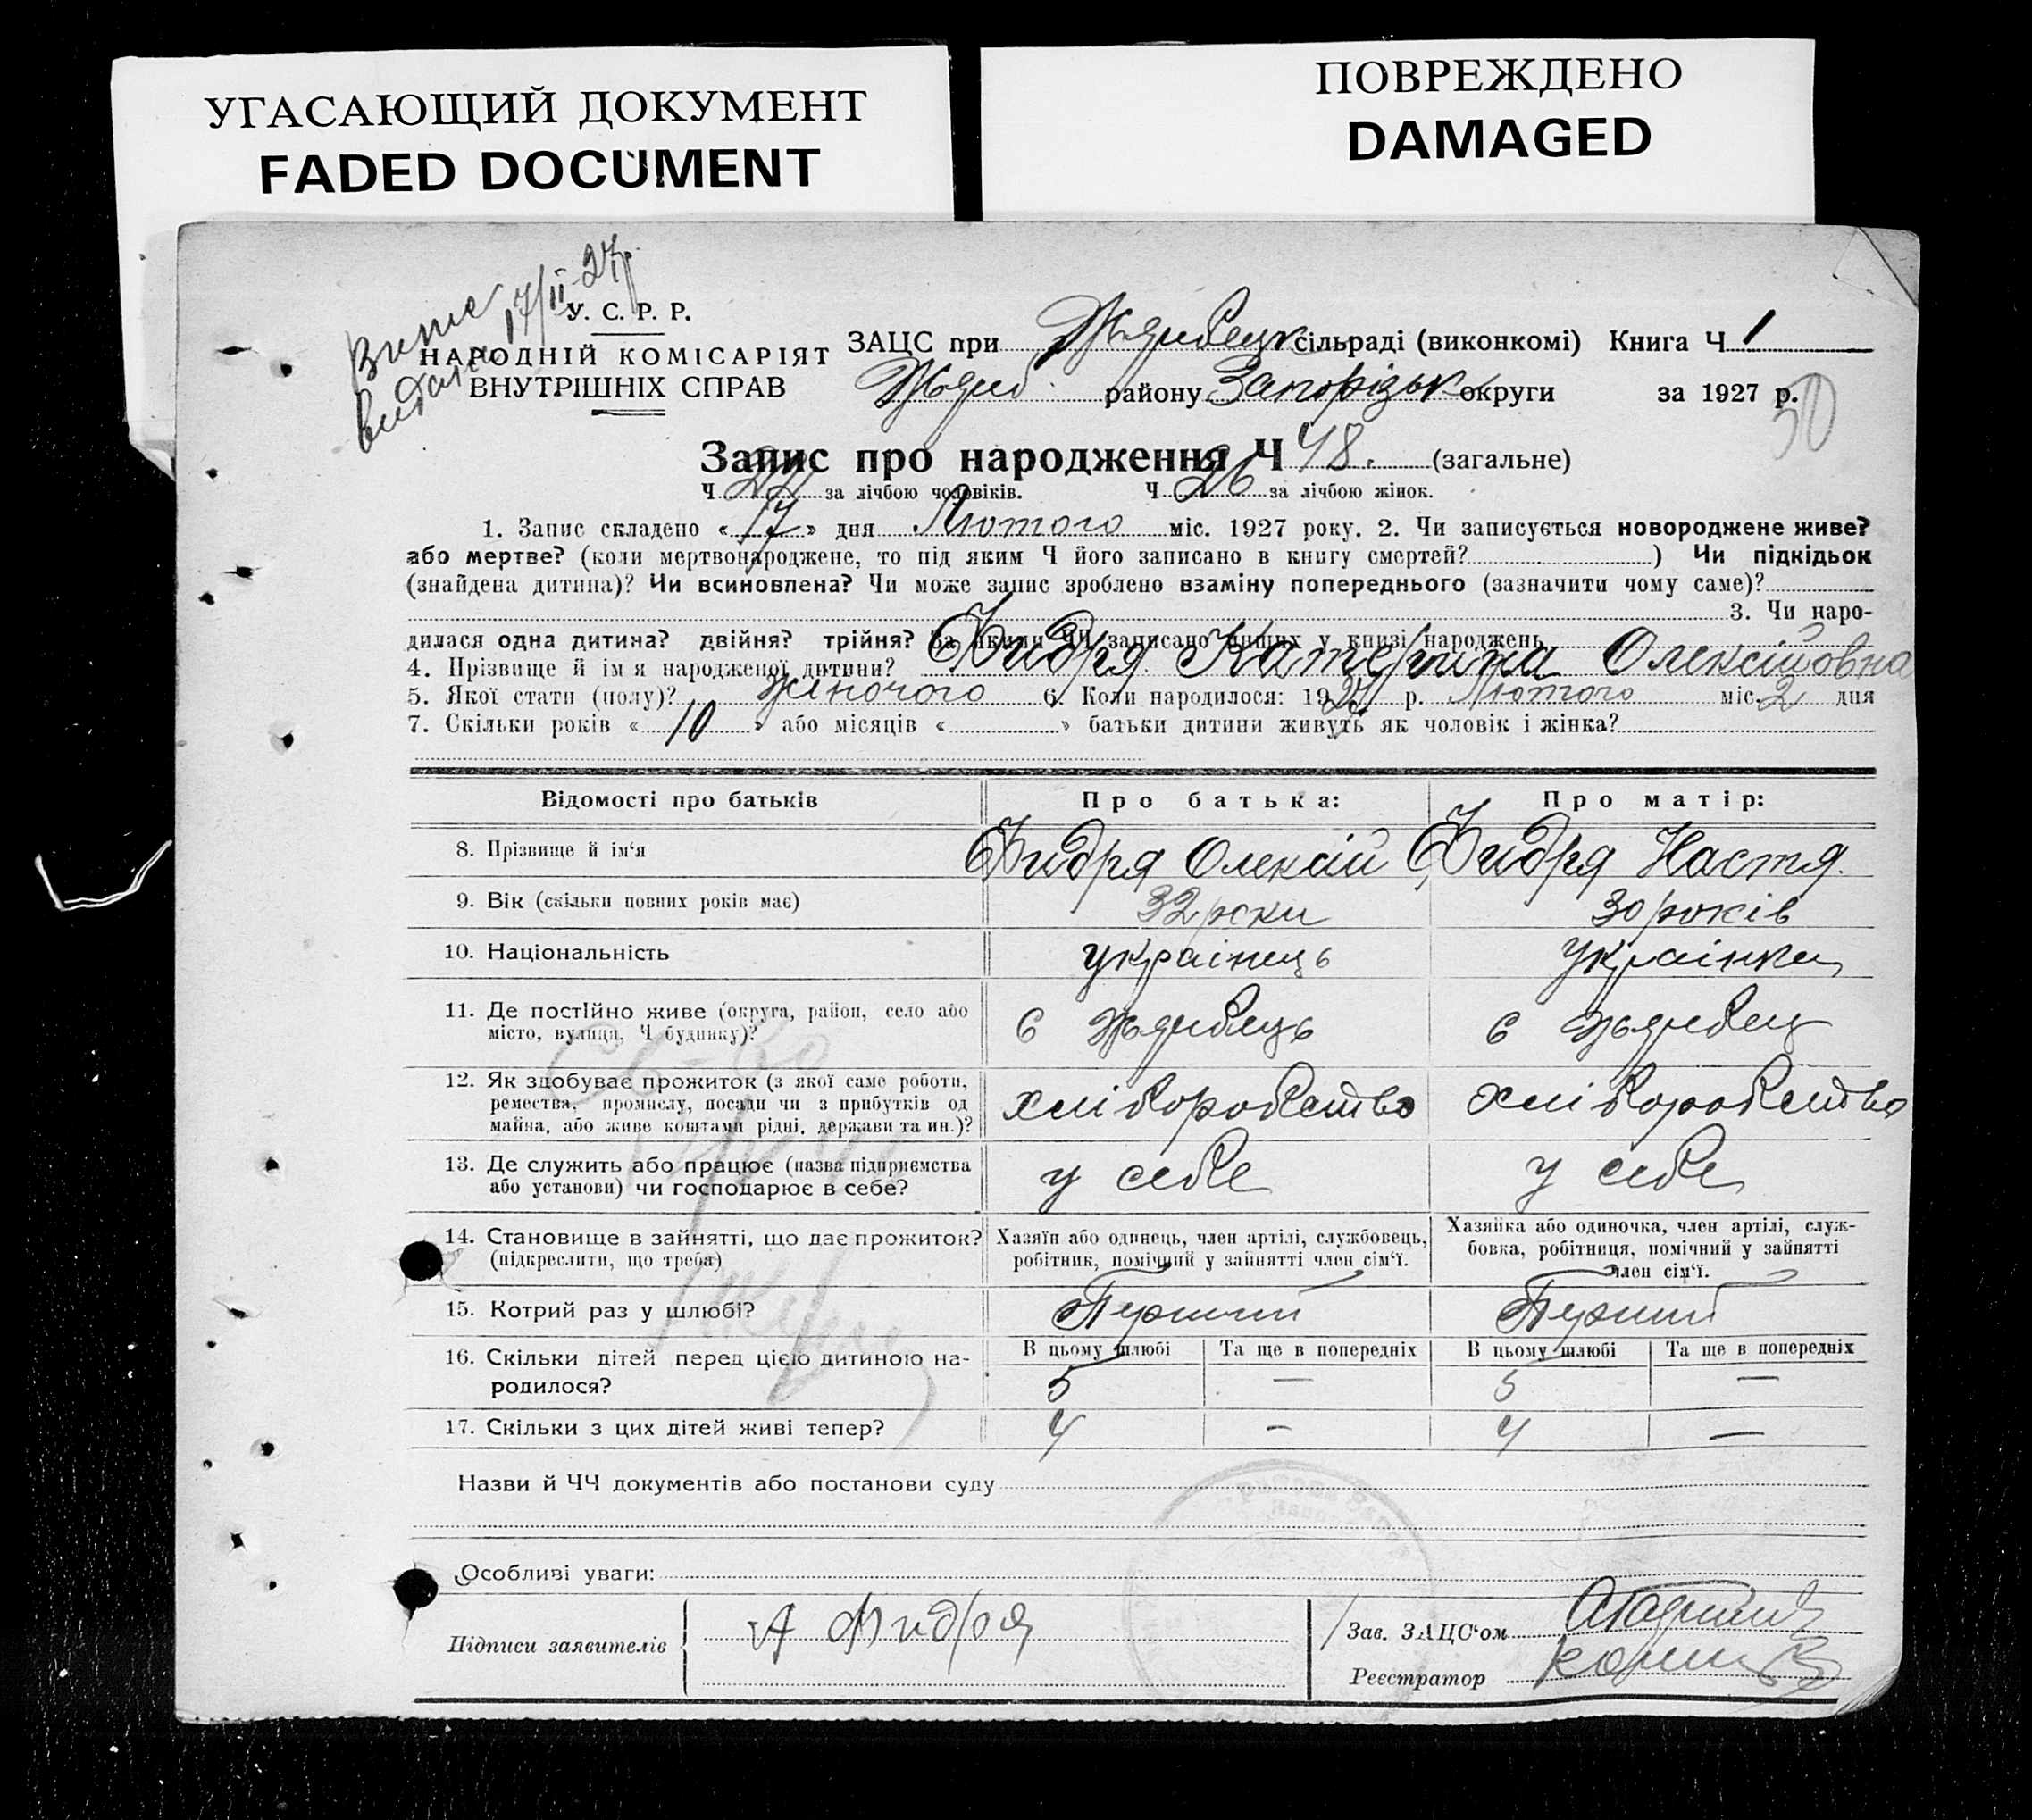 УГАСАЮЩИЙ ДОКУМЕНТ
FADED DOCUMENT
ПОВРЕЖДЕНО
DAMAGED
видана 17/II-27р.
У. С. Р. Р.
НАРОДНІЙ КОМІСАРІЯТ
ВНУТРІШНІХ СПРАВ
ЗАЦС при Жеребецьк сільраді (виконкомі) Книга Ч 1
Жереб району Запорізьк округи за 1927 р.
50
Запис про народження Ч 48. (загальне)
Ч 22 за лічбою чоловіків. Ч 26 за лічбою жінок.
1. Запис складено « 17 » дня Лютого міс. 1927 року. 2. Чи записується новороджене живе?
або мертве? (коли мертвонароджене, то під яким Ч його записано в книгу смертей? ) Чи підкідьок
(знайдена дитина)? Чи всиновлена? Чи може запис зроблено взаміну попереднього (зазначити чому саме)?
3. Чи наро-
дилася одна дитина? двійня? трійня? За якими ЧЧ записано инших у книзі народжень
4. Прізвище й ім я народженої дитини? Фидря Катерина Олексійовна
5. Якої стати (полу)? женочого 6. Коли народилося: 1927 р. Лютого міс. 2 дня
7. Скільки років « 10 » або місяців « » батьки дитини живуть як чоловік і жінка?
Відомості про батьків Про батька: Про матір:
8. Прізвище й ім‘я Фидря Олексій Фидря Настя.
9. Вік (скільки повних років має) 32 роки 30 років
10. Національність українець українка
11. Де постійно живе (округа, район, село або
місто, вулиця, Ч будинку)? с Жеребець с Жеребец
12. Як здобуває прожиток (з якої саме роботи,
ремества, промислу, посади чи з прибутків од
майна, або живе коштами рідні, держави та ин.)? хліборобство хліборобство
13. Де служить або працює (назва підприємства
або установи) чи господарює в себе? у себе у себе
14. Становище в зайнятті, що дає прожиток?
(підкреслити, що треба)
Хазяїн або одинець, член артілі, службовець,
робітник, помічний у зайнятті член сім‘ї.
Хазяйка або одиночка, член артілі, служ-
бовка, робітниця, помічний у зайнятті
член сім‘ї.
15. Котрий раз у шлюбі? Перший Перший
16. Скільки дітей перед цією дитиною на-
родилося?
В цьому шлюбі Та ще в попередніх В цьому шлюбі Та ще в попередніх
5 — 5 —
17. Скільки з цих дітей живі тепер? 4 — 4 —
Назви й ЧЧ документів або постанови суду
Особливі уваги:
Підписи заявителів А Фидря
Зав. ЗАЦС‘ом
Реєстратор